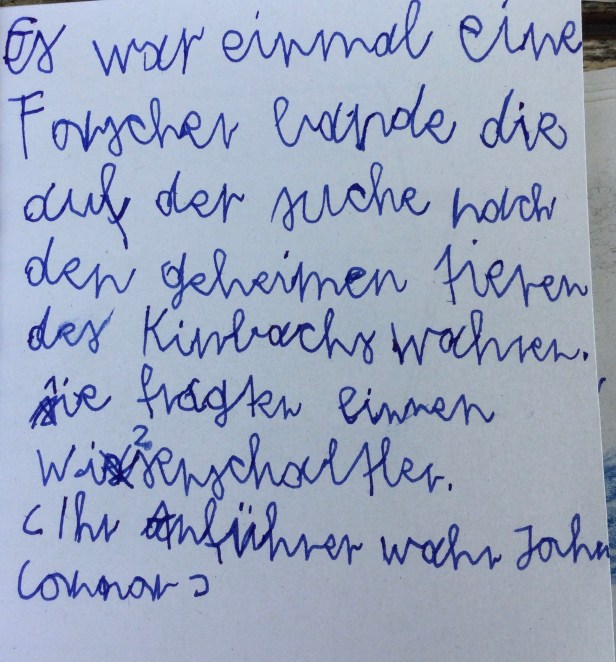 Es war einmal eine
Forscher bande die
auf der suche nach
den geheimen tieren
des Kimbachs wahren.
sie fragten einnen
Wissenschaltler.
(Ihr Anführer wahr John
Connor)